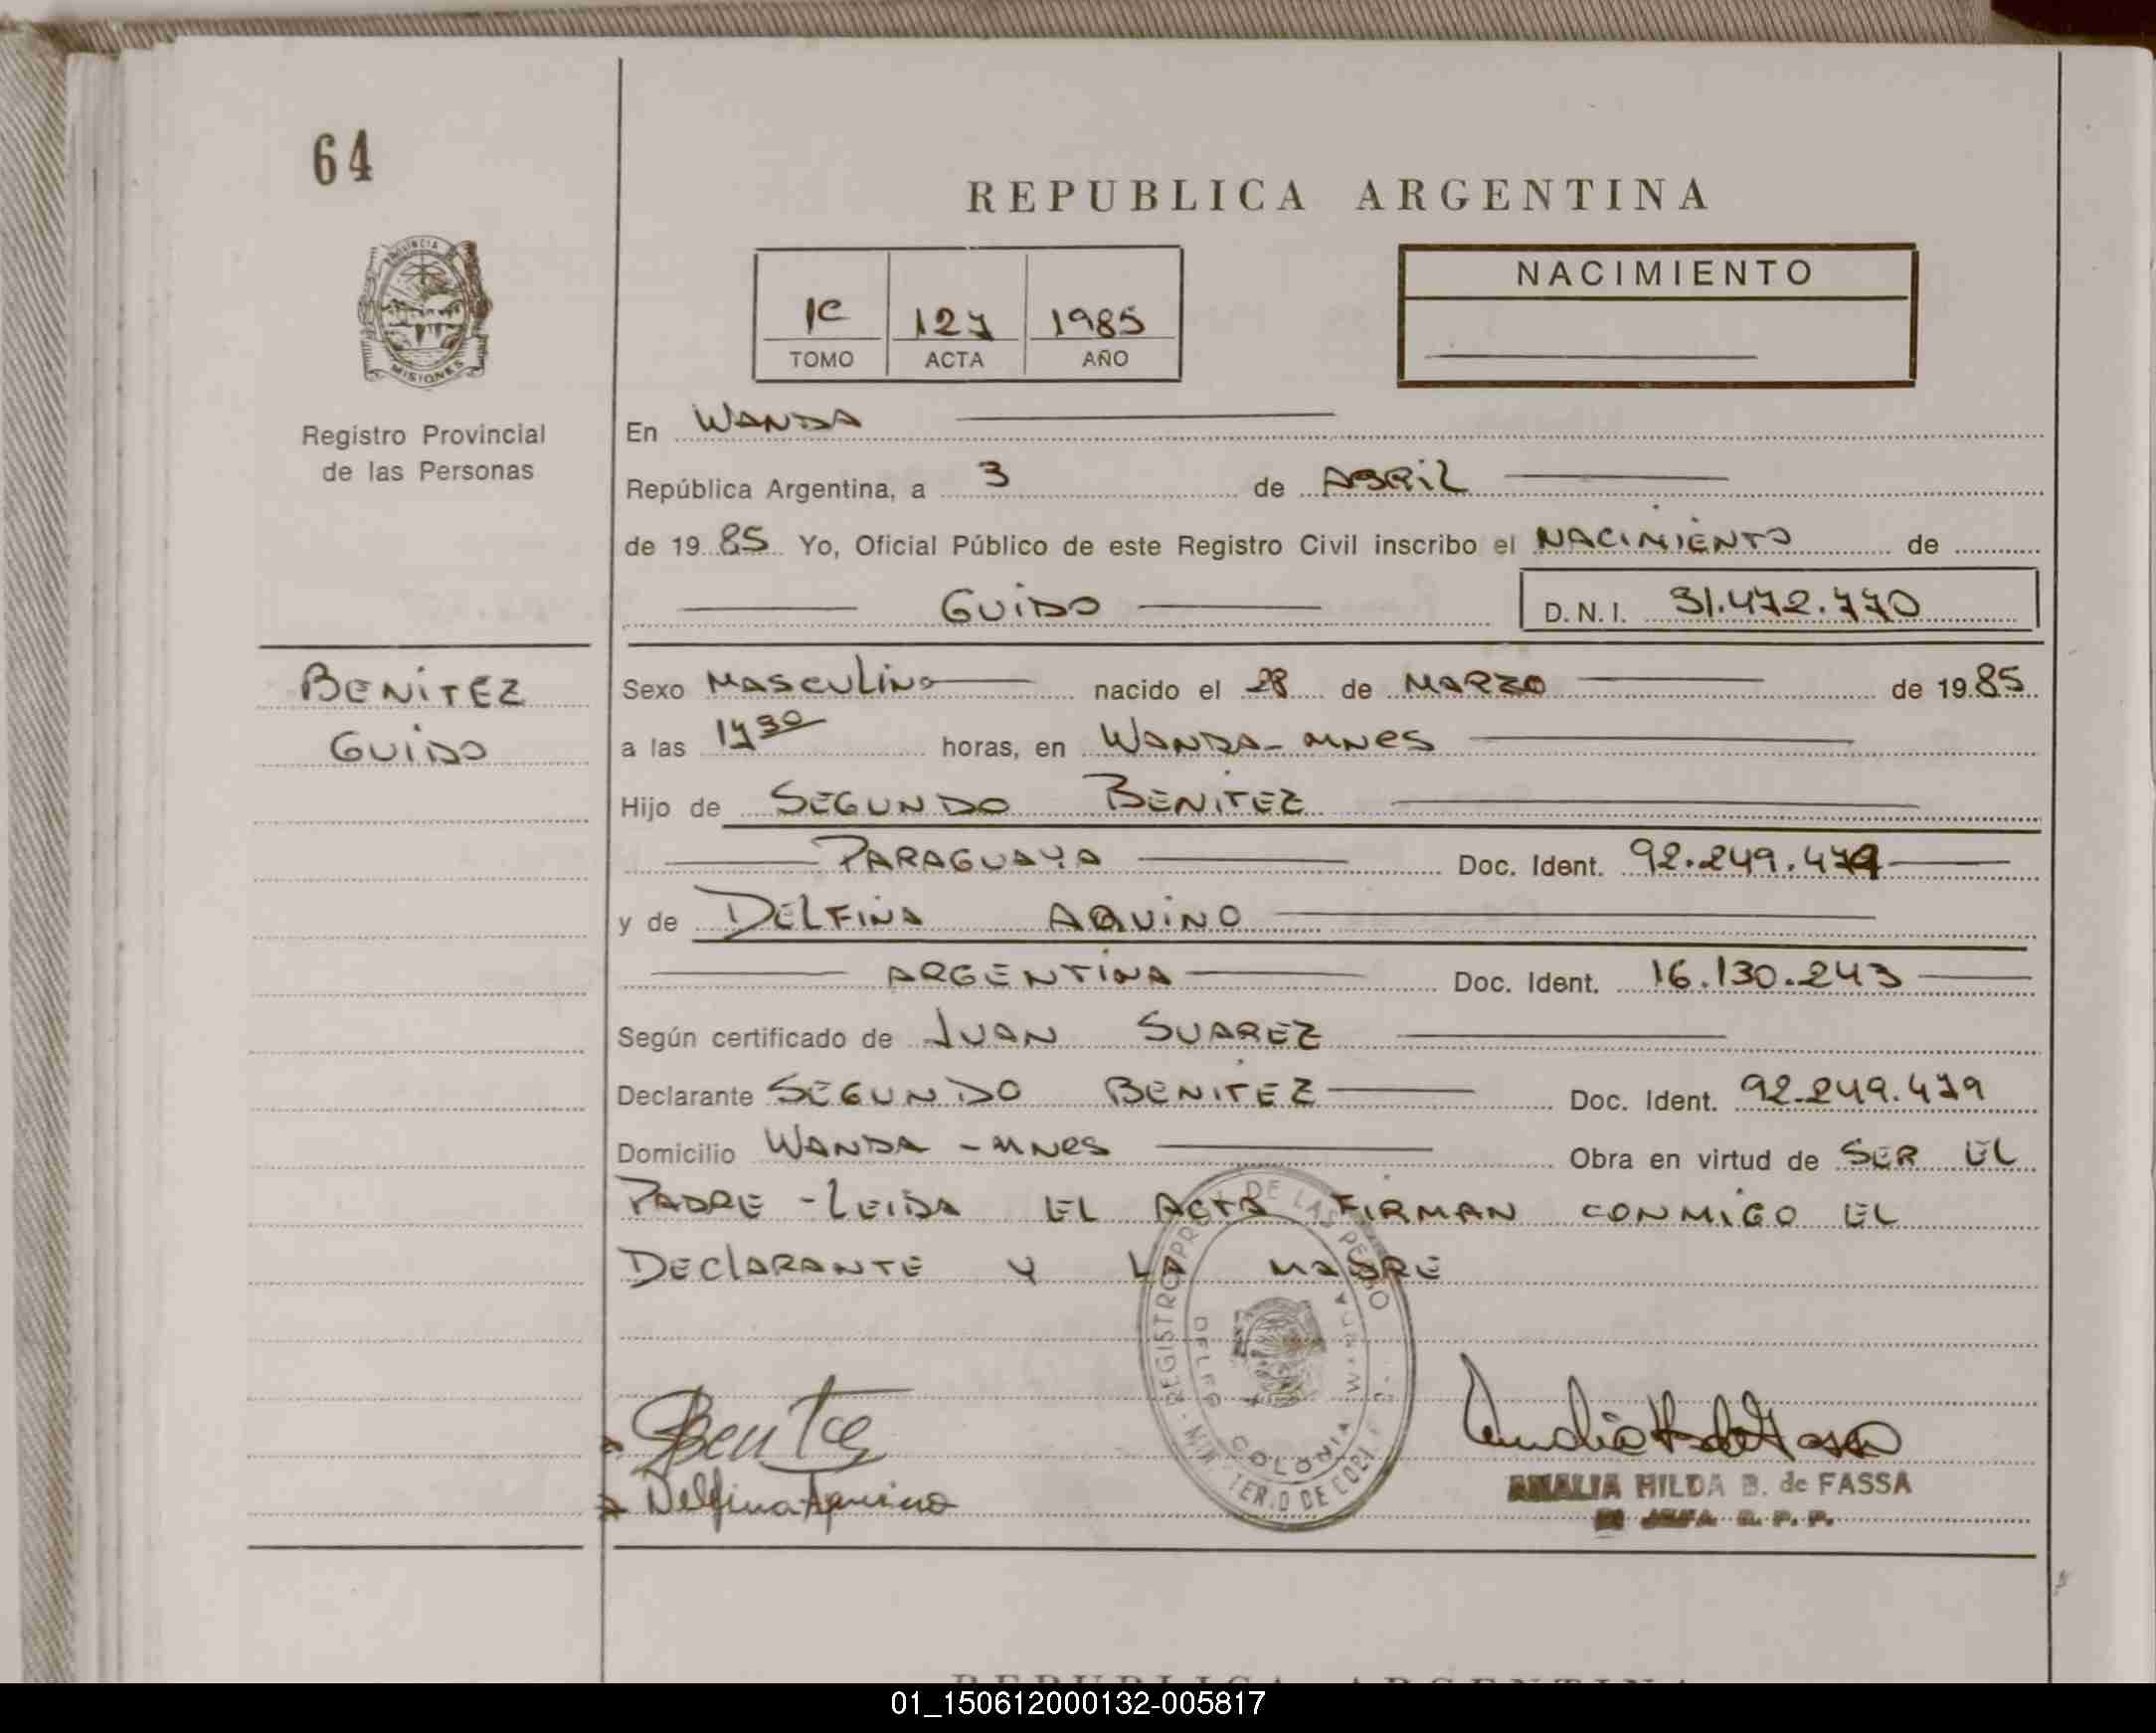 64
REPUBLICA ARGENTINA
PROVINCIA
MISIONES
Registro Provincial
de las Personas
1C 127 1985
TOMO ACTA AÑO
NACIMIENTO
En WANDA
República Argentina, a 3 de ABRIL
de 19 85 Yo, Oficial Público de este Registro Civil inscribo el NACIMIENTO de
GUIDO D.N.I. 31.472.770
BENITEZ
GUIDO
Sexo MASCULINO nacido el 28 de MARZO de 19 85
a las 17 30 horas, en WANDA - MNES
Hijo de SEGUNDO BENITEZ
PARAGUAYA Doc. Ident. 92.249.479
y de DELFINA AQUINO
ARGENTINA Doc. Ident. 16.130.243
Según certificado de JUAN SUAREZ
Declarante SEGUNDO BENITEZ Doc. Ident. 92.249.479
Domicilio WANDA - MNES Obra en virtud de SER EL
PADRE - LEIDA EL ACTA FIRMAN CONMIGO EL
DECLARANTE Y LA MADRE
REGISTRO DE LAS
COLONIA WANDA
Delfina Aquino
AMALIA HILDA B. de FASSA
REPUBLICA ARGENTINA
01_150612000132-005817